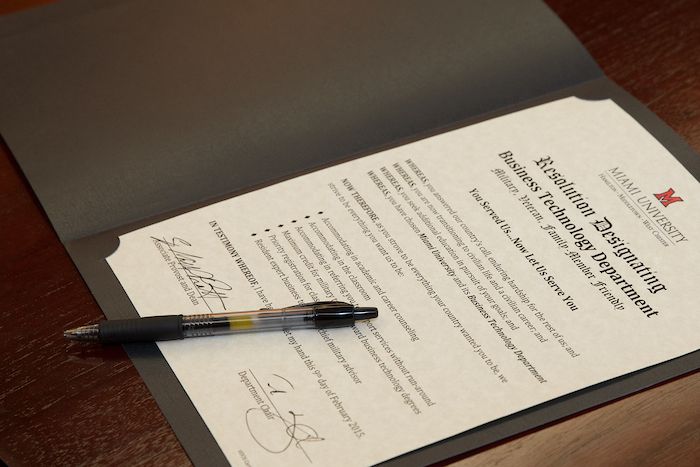 M
MIAMI UNIVERSITY
HAMILTON · MIDDLETOWN · WEST CHESTER
Resolution Designating
Business Technology Department
Military, Veteran, Family Member Friendly
You Served Us...Now Let Us Serve You
WHEREAS, you answered our country's call, enduring hardship for the rest of us; and
WHEREAS, you are now transitioning to civilian life and a civilian career; and
WHEREAS, you seek additional education in pursuit of your goals; and
WHEREAS, you have chosen Miami University and its Business Technology Department
NOW THEREFORE, as you strove to be everything your country wanted you to be, we
strive to be everything you want us to be.
• Accommodating in academic and career counseling
• Accommodating in the classroom
• Accommodating in referring you support services without run-around
• Maximum credit for military toward business technology degrees
• Priority registration for
• Resident expert business chief military advisor
IN TESTIMONY WHEREOF, I have set my hand this 9th day of February 2015.
Associate Provost and Dean
Department Chair